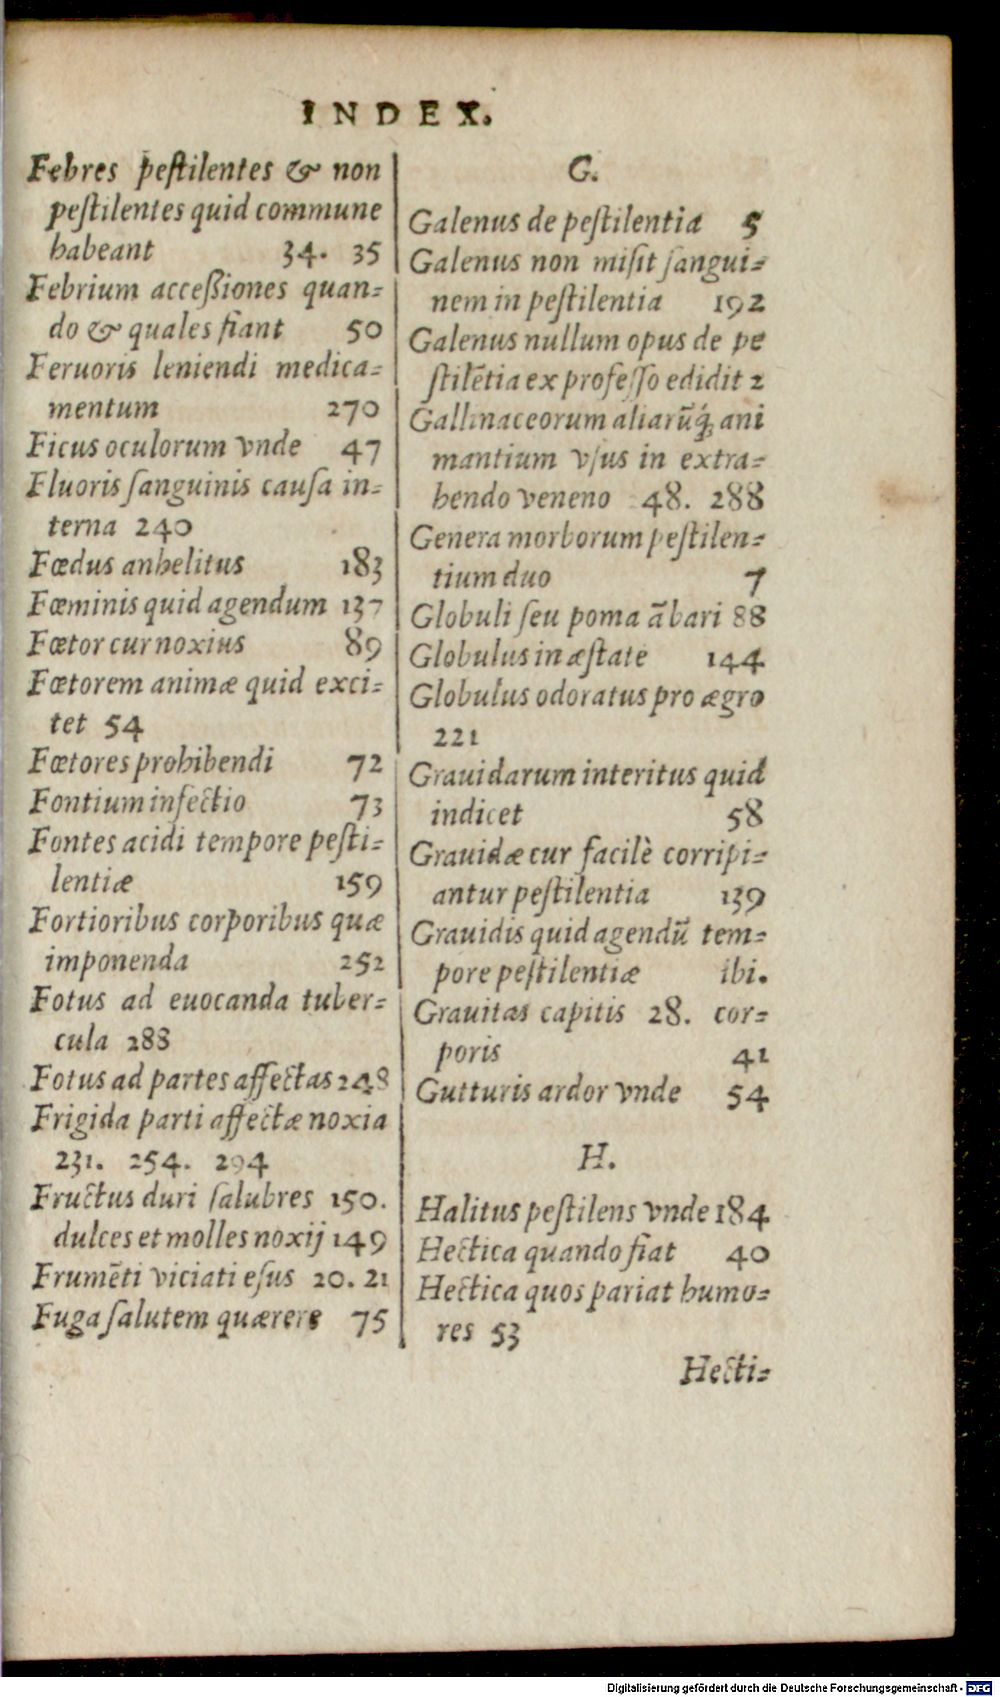 INDEX.
Febres pestilentes & non
pestilentes quid commune
habeant 34. 35
Febrium acceßiones quan-
do & quales fiant 50
Feruoris leniendi medica-
mentum 270
Ficus oculorum vnde 47
Fluoris sanguinis causa in-
terna 240
Fœdus anhelitus 183
Fœminis quid agendum 137
Fœtor cur noxius 89
Fœtorem animæ quid exci-
tet 54
Fœtores prohibendi 72
Fontium infectio 73
Fontes acidi tempore pesti-
lentiæ 159
Fortioribus corporibus quæ
imponenda 252
Fotus ad euocanda tuber-
cula 288
Fotus ad partes affectas 248
Frigida parti affectæ noxia
231. 254. 294
Fructus duri salubres 150.
dulces et molles noxij 149
Frumēti viciati esus 20. 21
Fuga salutem quærere 75
G.
Galenus de pestilentia 5
Galenus non misit sangui-
nem in pestilentia 192
Galenus nullum opus de pe
stilētia ex professo edidit 2
Gallinaceorum aliarūq́; ani
mantium vsus in extra-
hendo veneno 48. 288
Genera morborum pestilen-
tium duo 7
Globuli seu poma ābari 88
Globulus in æstate 144
Globulus odoratus pro ægro
221
Grauidarum interitus quid
indicet 58
Grauidæ cur facilè corripi-
antur pestilentia 139
Grauidis quid agendū tem-
pore pestilentiæ ibi.
Grauitas capitis 28. cor-
poris 41
Gutturis ardor vnde 54
H.
Halitus pestilens vnde 184
Hectica quando fiat 40
Hectica quos pariat humo-
res 53
Hecti-
Digitalisierung gefördert durch die Deutsche Forschungsgemeinschaft - DFG